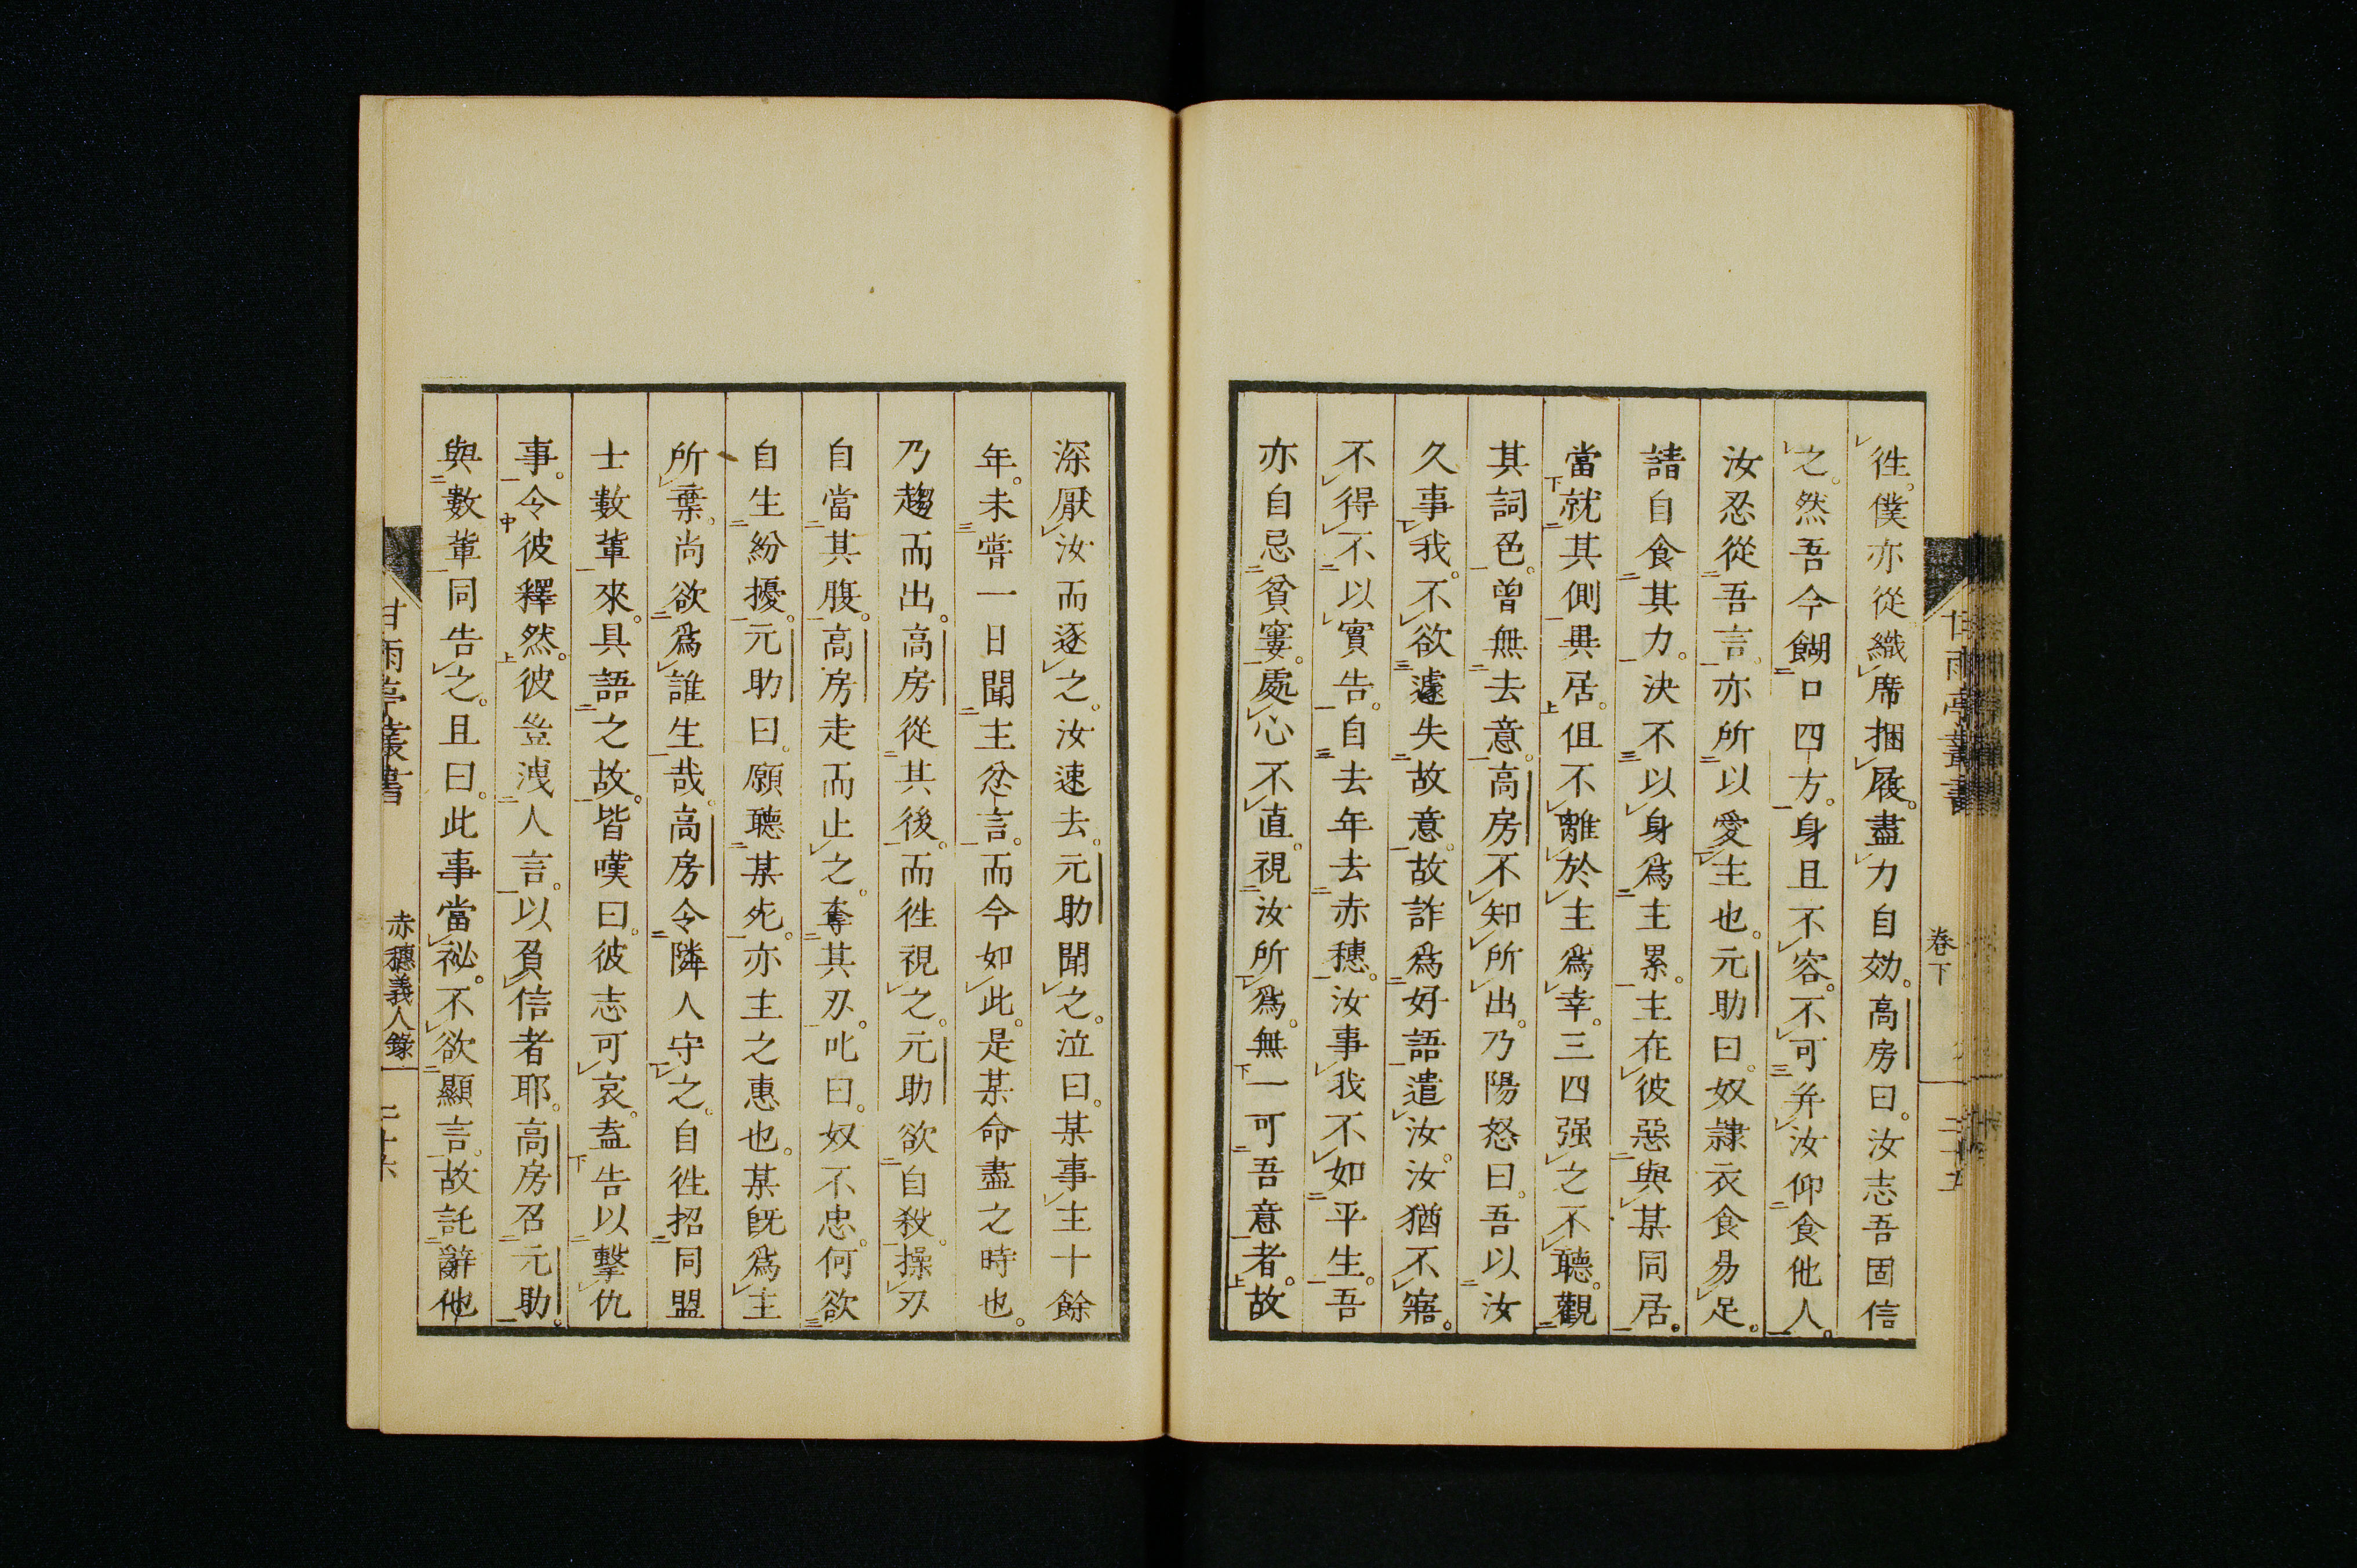 徃。僕亦從織席捆屨。盡力自効。高房曰。汝志吾固信
之。然吾今餬口四方。身且不容。不可并汝仰食他人。
汝忍從吾言。亦所以愛主也。元助曰。奴隷衣食易足。
請自食其力。決不以身爲主累。主在彼惡與某同居。
當就其側異居。但不離於主爲幸。三四强之不聽。觀
其詞色。曾無去意。高房不知所出。乃陽怒曰。吾以汝
久事我。不欲遽失故意。故詐爲好語遣汝。汝猶不寤。
不得不以實告。自去年去赤穗。汝事我不如平生。吾
亦自忌貧窶。處心不直。視汝所爲。無一可吾意者。故
甘雨亭叢書
卷下
二十五
深厭汝而逐之。汝速去。元助聞之。泣曰。某事主十餘
年。未嘗一日聞主忿言。而今如此。是某命盡之時也。
乃趨而出。高房從其後。而徃視之。元助欲自殺。操刃
自當其腹。高房走而止之。奪其刃。叱曰。奴不忠。何欲
自生紛擾。元助曰。願聽某死。亦主之惠也。某旣爲主
所棄。尚欲爲誰生哉。高房令隣人守之。自徃招同盟
士數輩來。具語之故。皆嘆曰。彼志可哀。盍告以擊仇
事。令彼釋然。彼豈洩人言。以負信者耶。高房召元助。
與數輩同告之。且曰。此事當祕。不欲顯言。故託辭他
甘雨亭叢書
赤穗義人錄
二十六